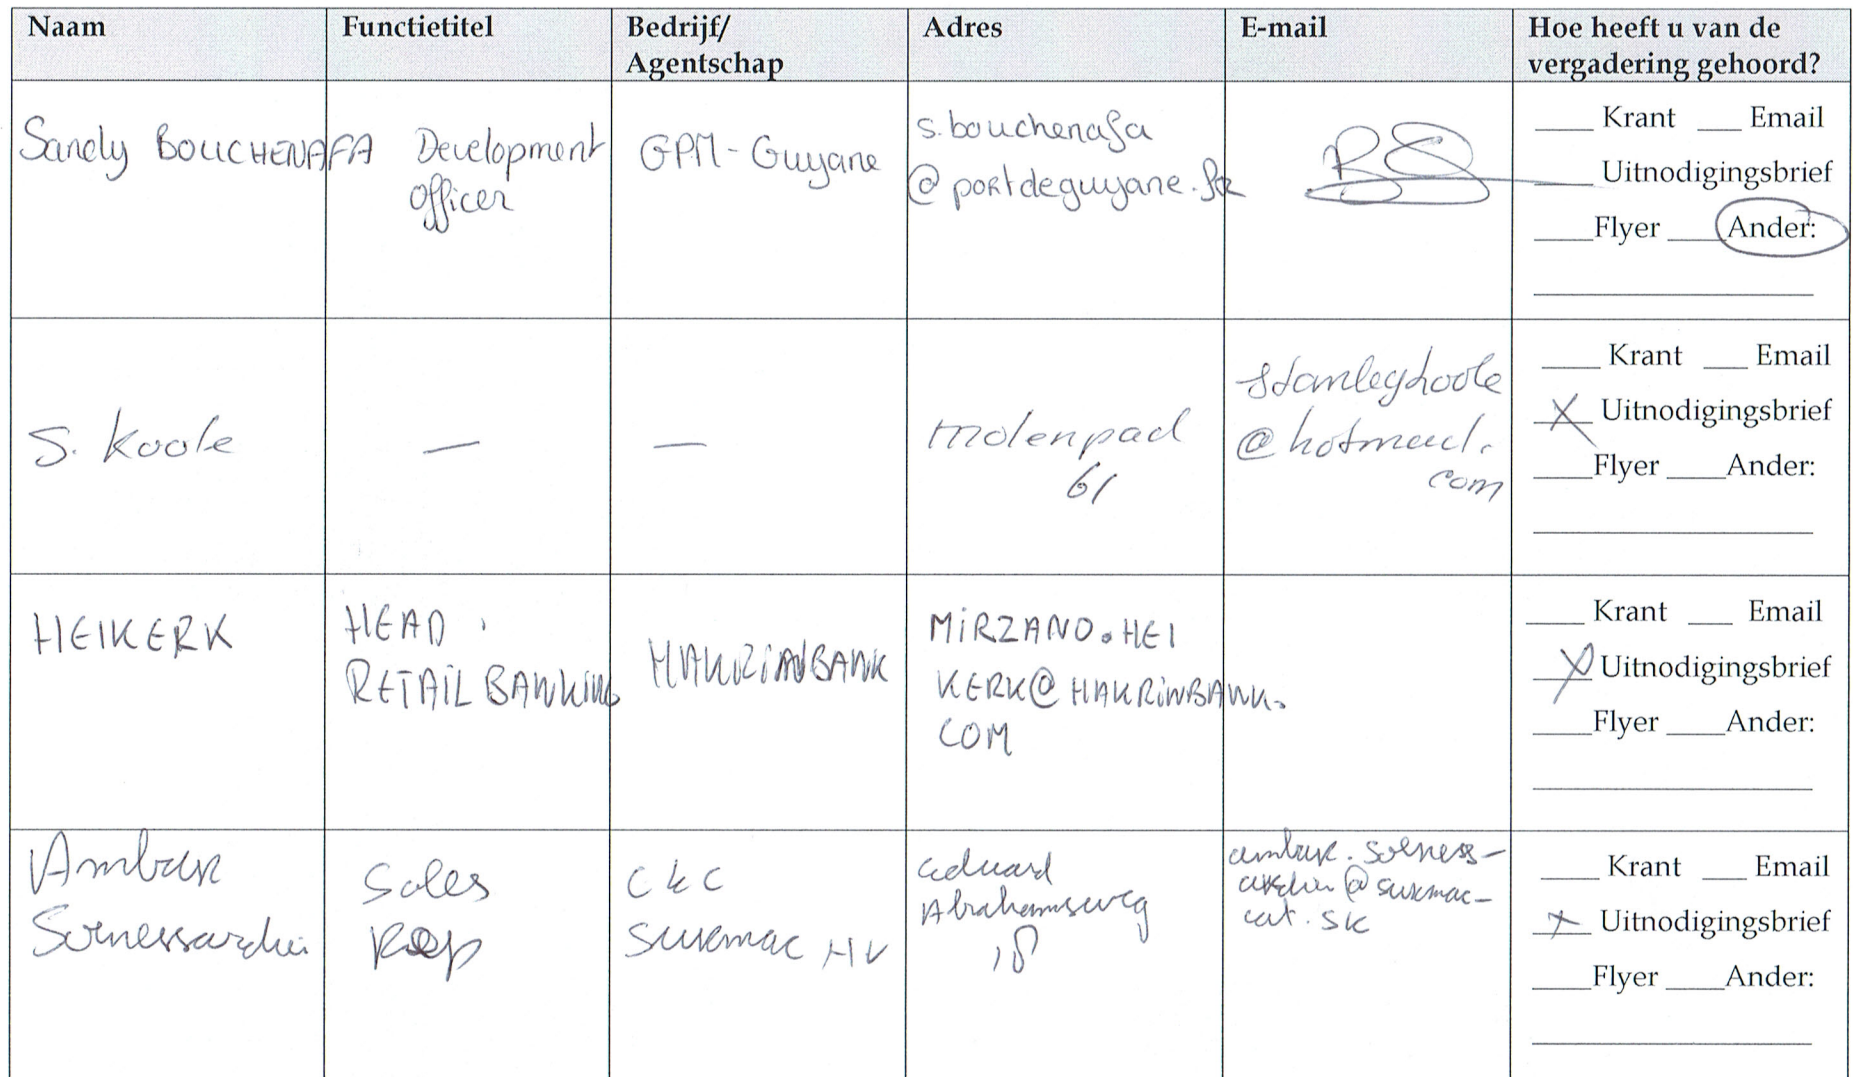 Naam Functietitel Bedrijf/ Adres E-mail Hoe heeft u van de
Agentschap vergadering gehoord?
Sandy BOUCHENAFA
Development
Officer
GPM-Guyane
s.bouchenafa
@portdeguyane.fr
___ Krant ___ Email
___ Uitnodigingsbrief
___Flyer ___Ander:
S. Koole
—
—
Molenpad
61
stanleykoole
@hotmail.
com
___ Krant ___ Email
X Uitnodigingsbrief
___Flyer ___Ander:
HEIKERK
HEAD
RETAIL BANKING
HAKRINBANK
MIRZANO.HEI
KERK@HAKRINBANK.
COM
___ Krant ___ Email
X Uitnodigingsbrief
___Flyer ___Ander:
Sales
Rep
CKC
Surmac NV
Eduard
Abrahamsweg
18
___ Krant ___ Email
X Uitnodigingsbrief
___Flyer ___Ander: